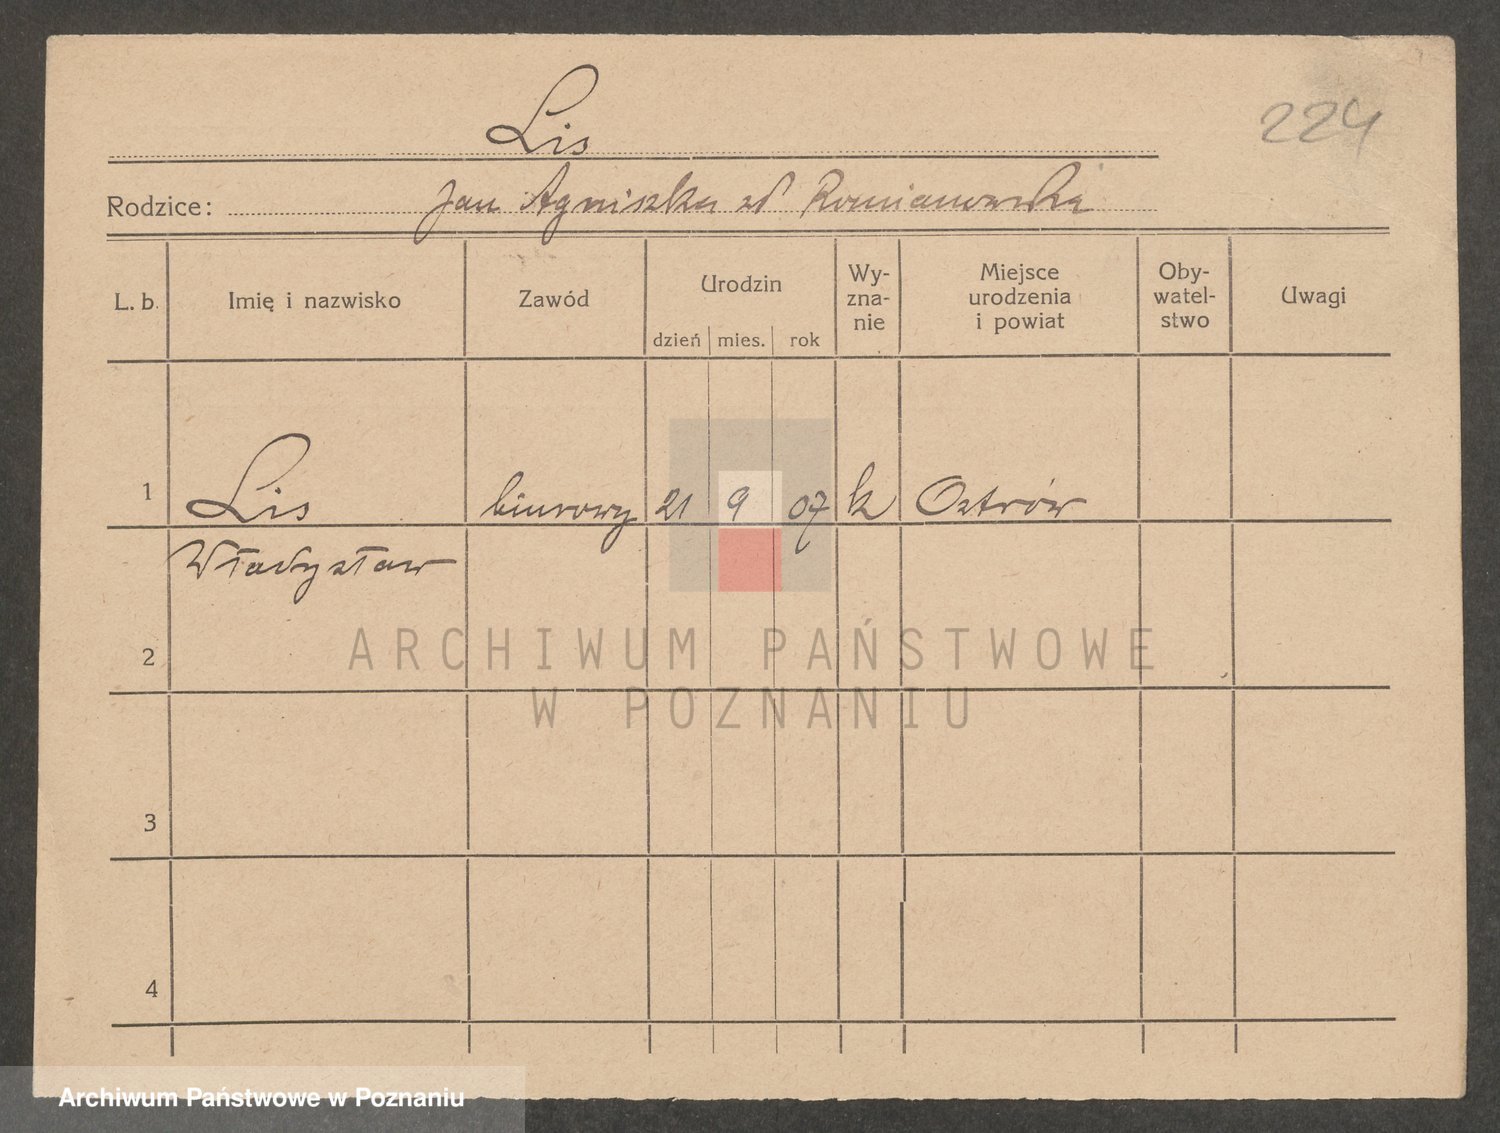 224
Lis
Rodzice: Jan Agniszka zd
L. b. Imię i nazwisko Zawód Urodzin dzień mies. rok Wy-zna-nie Miejsce urodzenia i powiat Oby-watel-stwo Uwagi
1 Lis biurowy 21 9 07 k Ostrów
Władysław
2
3
4
ARCHIWUM PAŃSTWOWE
W POZNANIU
Archiwum Państwowe w Poznaniu